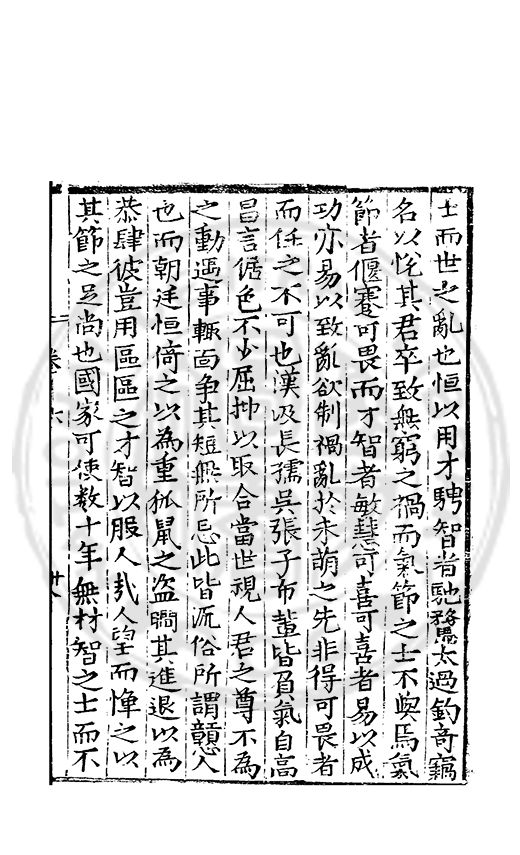 士而世之亂也恒以用才騁智者馳騖太過釣竒竊
名以悅其君卒致無窮之禍而氣節之士不與焉氣
節者偃蹇可畏而才智者敏慧可喜可喜者易以成
功亦易以致亂欲制禍亂於未萌之先非得可畏者
而任之不可也漢汲長孺吳張子布輩皆負氣自高
昌言倨色不少屈抑以取合當世視人君之尊不為
之動遇事輒面争其短無所忌此皆流俗所謂戇人
也而朝廷恒倚之以為重狐鼠之盗瞷其進退以為
恭肆彼豈用區區之才智以服人㦲人望而憚之以
其節之足尚也國家可使数十年無材智之士而不